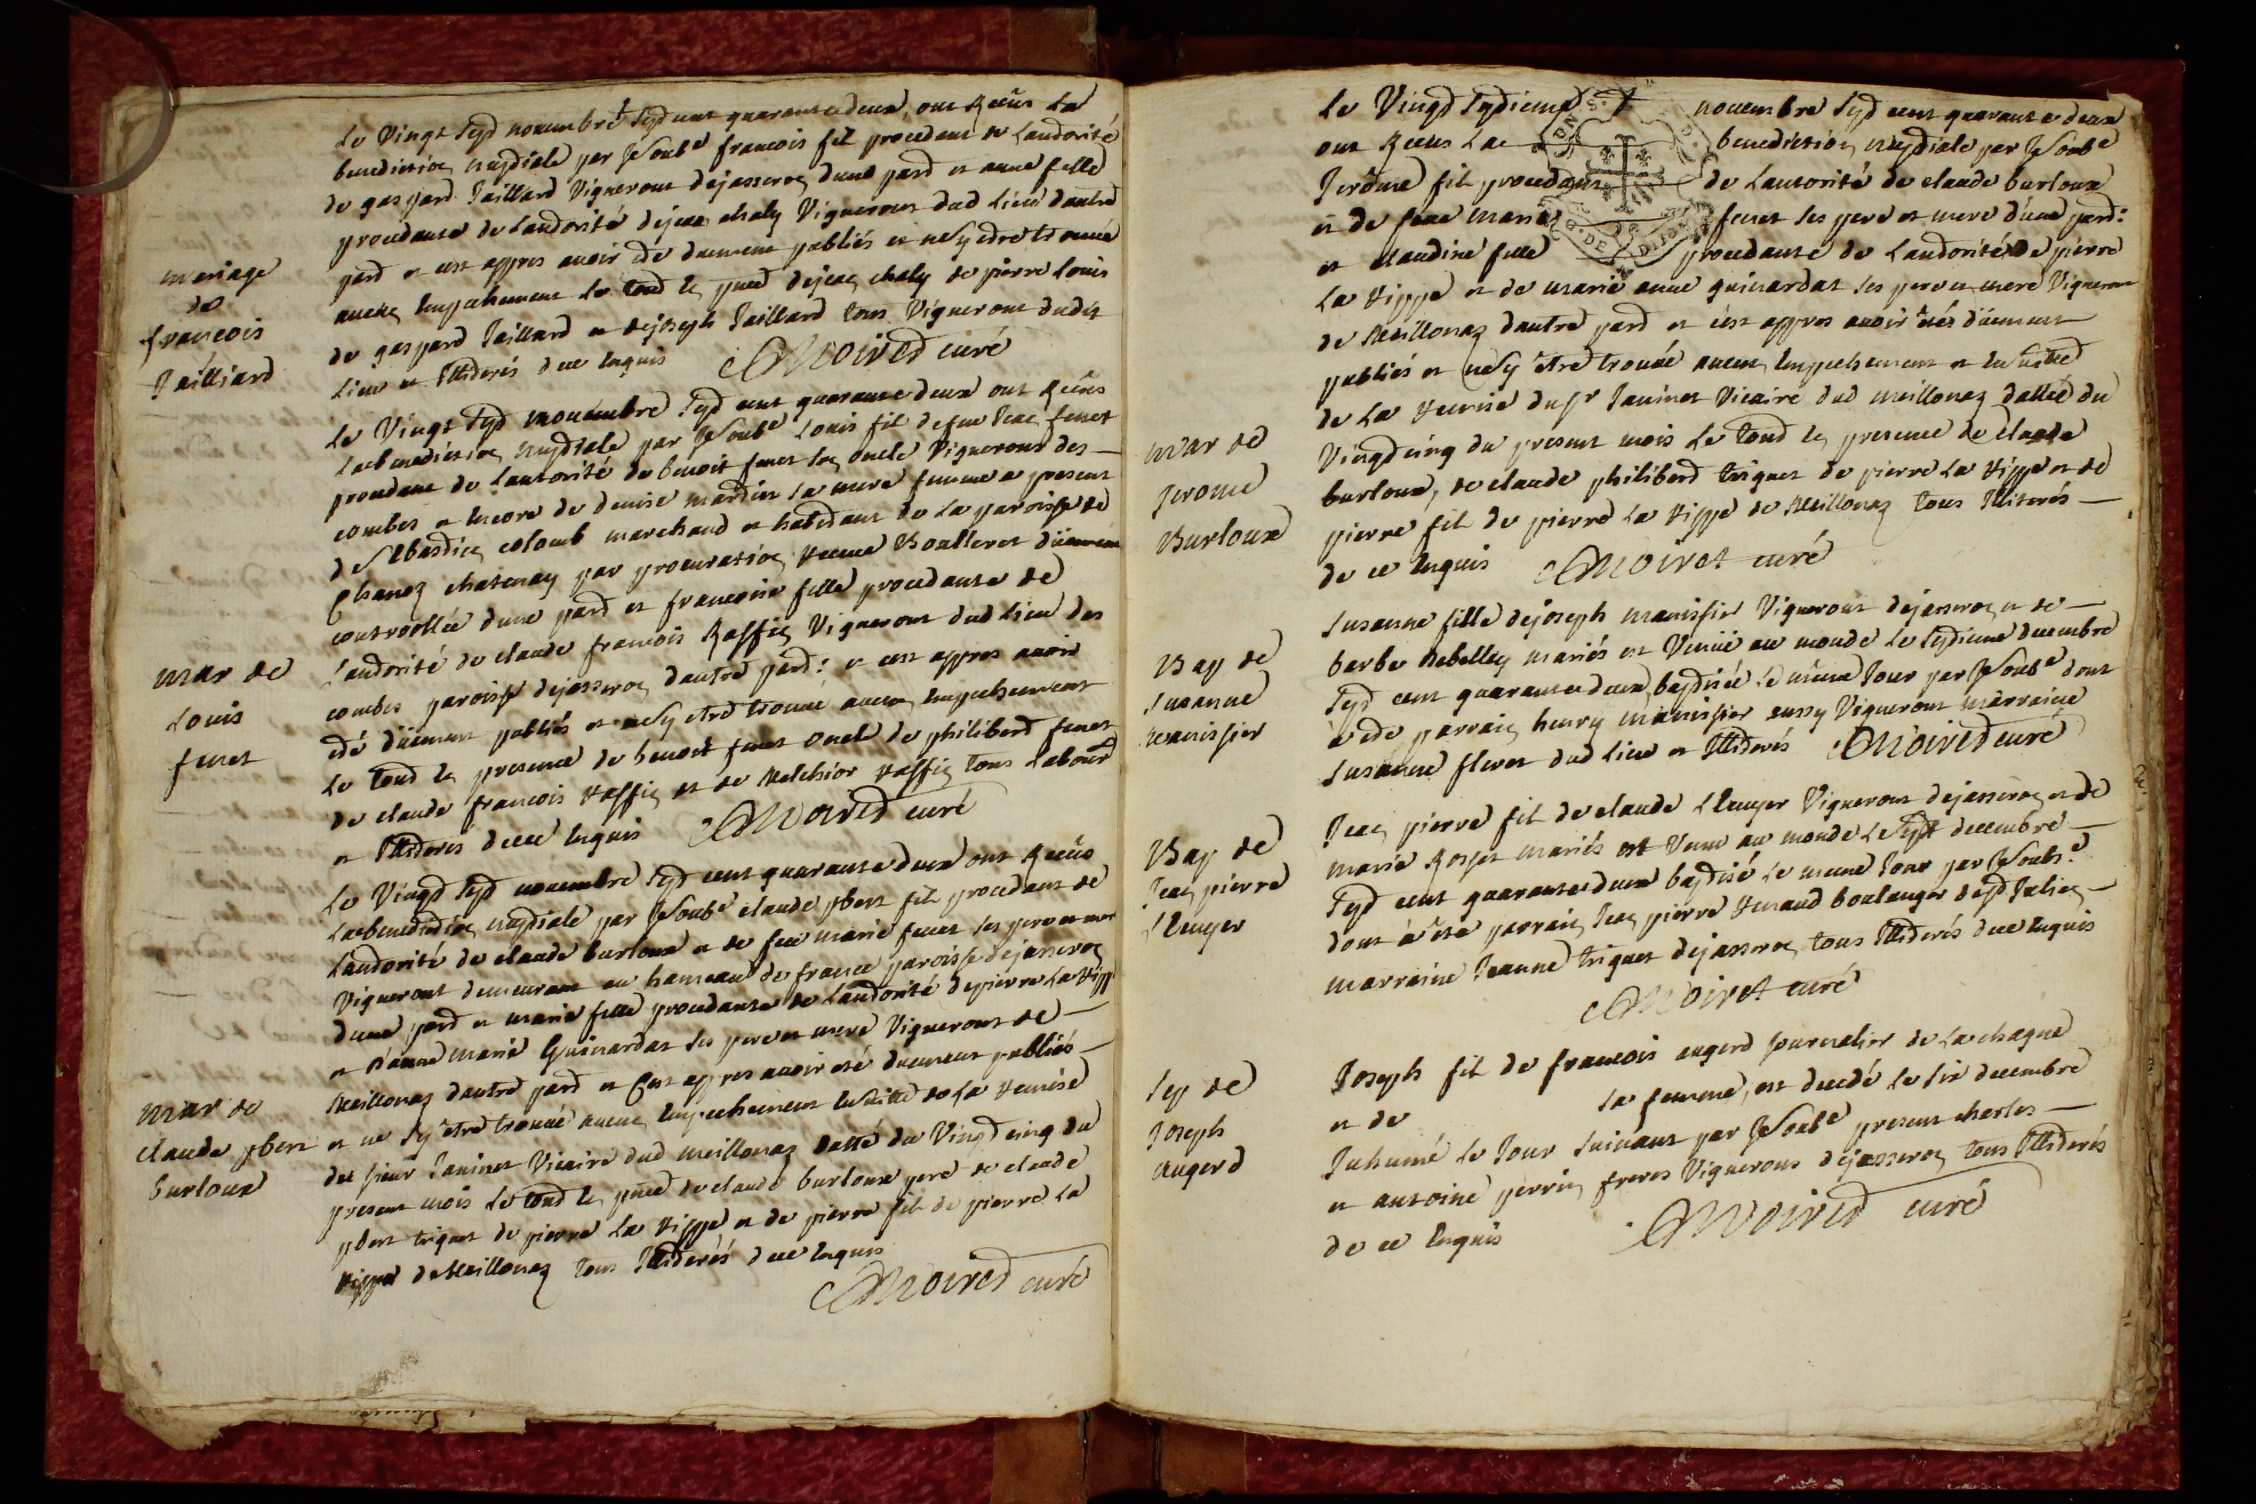 mariage
de
francois
Jailliard
Le Vingt sept nouembre sept cent quarante deux, ont Receus La
benediction nuptiale par Je soub.e francois fils procedant de Lauthorité
de gaspard Jaillard Vigneront dejasseron dune pard et anne fille
procedante de Lauthorité dejean chaly Vigneront dud Lieu dautre
pard et cest appres auoir eté duement publiés et ne sy etre trouué
aucun Empechement Le tout En pnce dejean chaly de pierre Louis
de gaspard Jaillard et dejoseph Jaillard tous Vigneront dudit
Lieu et Illiterés de ce Enquis Moiret curé
mar de
Louis
feuret
Le Vingt sept nouembre sept cent quarante deux ont Receus
La benediction nuptiale par Je soub.e Louis fils de feu Jean
procedant de Lautorité de benoit son oncle Vigneront des
combes et Encore de denise mardin sa mere femme a present
de sebastien colomb marchand et habitant de La paroisse de
chatenay par procuration Receue duement
controollée dune pard et francoise fille procedante de
Lauthorité de claude francois Raffin Vigneront dud Lieu des
combes paroisse dejasseron dautre pard: et cest appres auoir
eté düement publiés et ne sy etre trouué aucun Empechement
Le tout En presence de benoit oncle de philibert
de claude francois Raffin et de Melchior Raffin tous Labour
et Illiterés de ce Enquis Moiret curé
mar de
claude pbert
Burloux
Le Vingt sept nouembre sept cent quarante deux ont Receus
La benediction nuptiale par Je soub.e claude pbert fils procedant de
Lauthorité de claude burloux et de feue marie ses pere et mere
Vigneront demeurant au hameau de france paroisse dejasseron
dune pard et marie fille procedante de Lauthorité de pierre La Rippe
et d'anne marie Guinardat ses pere et mere Vigneront de
Meillonaz dautre pard et Cest appres auoir eté duement publiés
et ne sy etre trouué aucun Empechement Ensuitte de La Remise
du sieur Janinet Vicaire dud meillonaz datté du Vingt cinq du
present mois Le tout En pnce de claude burloux pere de claude
pbert triquet de pierre La Rippe et de pierre fils de pierre La
Rippe de Meillonaz tous Illiterés de ce Enquis
Moiret curé
mar de
Jerome
Burloux
Le Vingt septieme nouembre sept cent quarante deux
ont Receus La benediction nuptiale par Je soub.e
Jerôme fils procedant de Lautorité de claude burloux
et de feue marie ses pere et mere d'une pard:
et claudine fille procedante de Lauthorité de pierre
La Rippe et de marie anne guinardat ses pere et mere Vigneron
de Meillonaz dautre pard et cest appres auoir etés düement
publiés et ne sy être trouué aucun Empechement et Ensuitte
de La Remise du sr Janinet Vicaire dud meillonaz dattée du
Vingt cinq du present mois Le tout En presence de claude
burloux, de claude philiberd triquet de pierre La Rippe et de
pierre fils de pierre La Rippe de Meillonaz tous Illiterés
de ce Enquis Moiret curé
Bap de
Susanne
Manissier
Susanne fille dejoseph manissier Vigneront dejasseron et de
barbe Rebelley mariés est Venue au monde Le septieme decembre
sept cent quarante deux baptisée Le même Jour par Je soub.e dont
à eté parrain henry manissier aussy Vigneront marraine
Susanne dud Lieu et Illiterés Moiret curé
Bap de
Jean pierre
Jean pierre fils de claude Vigneront dejasseron et de
marie Rosset mariés est Venu au monde Le sept decembre
sept cent quarante deux baptisé Le meme Jour par Je soubs.e
dont à eté parrain Jean pierre Renaud boulanger de st Julien
marraine Jeanne triquet dejasseron tous Illiterés de ce Enquis
Moiret curé
Sep de
Joseph
Augerd
Joseph fils de francois augerd Journalier de La chagne
et de sa femme, est decedé Le six decembre
Inhumé Le Jour suiuant par Je soub.e present charles
et antoine perrin freres Vignerons dejasseron tous Illiterés
de ce Enquis Moiret curé